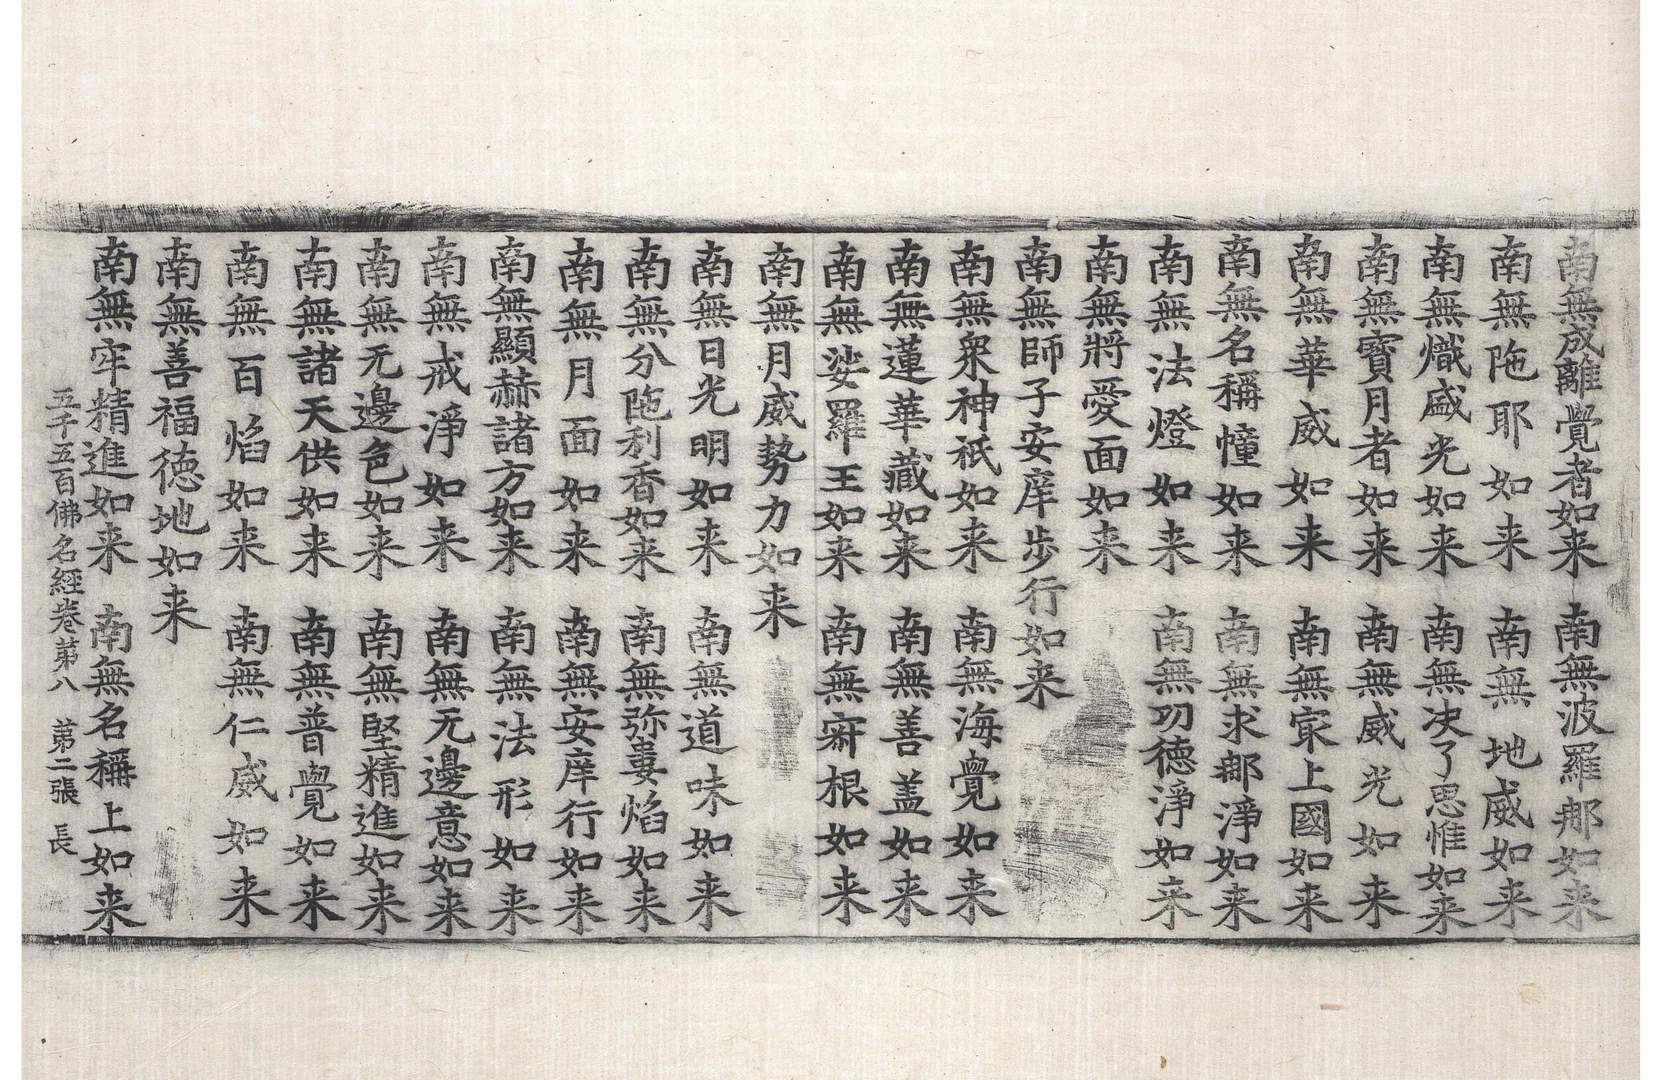 南無成離覺者如来　南無波羅那如来
南無陁耶如来　南無地威如来
南無熾盛光如来　南無决了思惟如来
南無寳月者如来　南無威光如来
南無華威如来　南無㝡上國如来
南無名稱幢如来　南無求那淨如来
南無法燈如来　南無功德淨如来
南無將愛面如来
南無師子安庠步行如来
南無衆神祇如来　南無海覺如来
南無蓮華藏如来　南無善盖如来
南無娑羅王如来　南無寂根如来
南無月威勢力如来
南無日光明如来　南無道味如来
南無分陁利香如来　南無弥婁焰如来
南無月面如来　南無安庠行如来
南無顯赫諸方如来　南無法形如来
南無戒淨如来　南無无邊意如来
南無无邊色如来　南無堅精進如来
南無諸天供如来　南無普覺如来
南無百焰如来　南無仁威如来
南無善福德地如来
南無牢精進如来　南無名稱上如来
五千五百佛名經卷第八　第二張　長